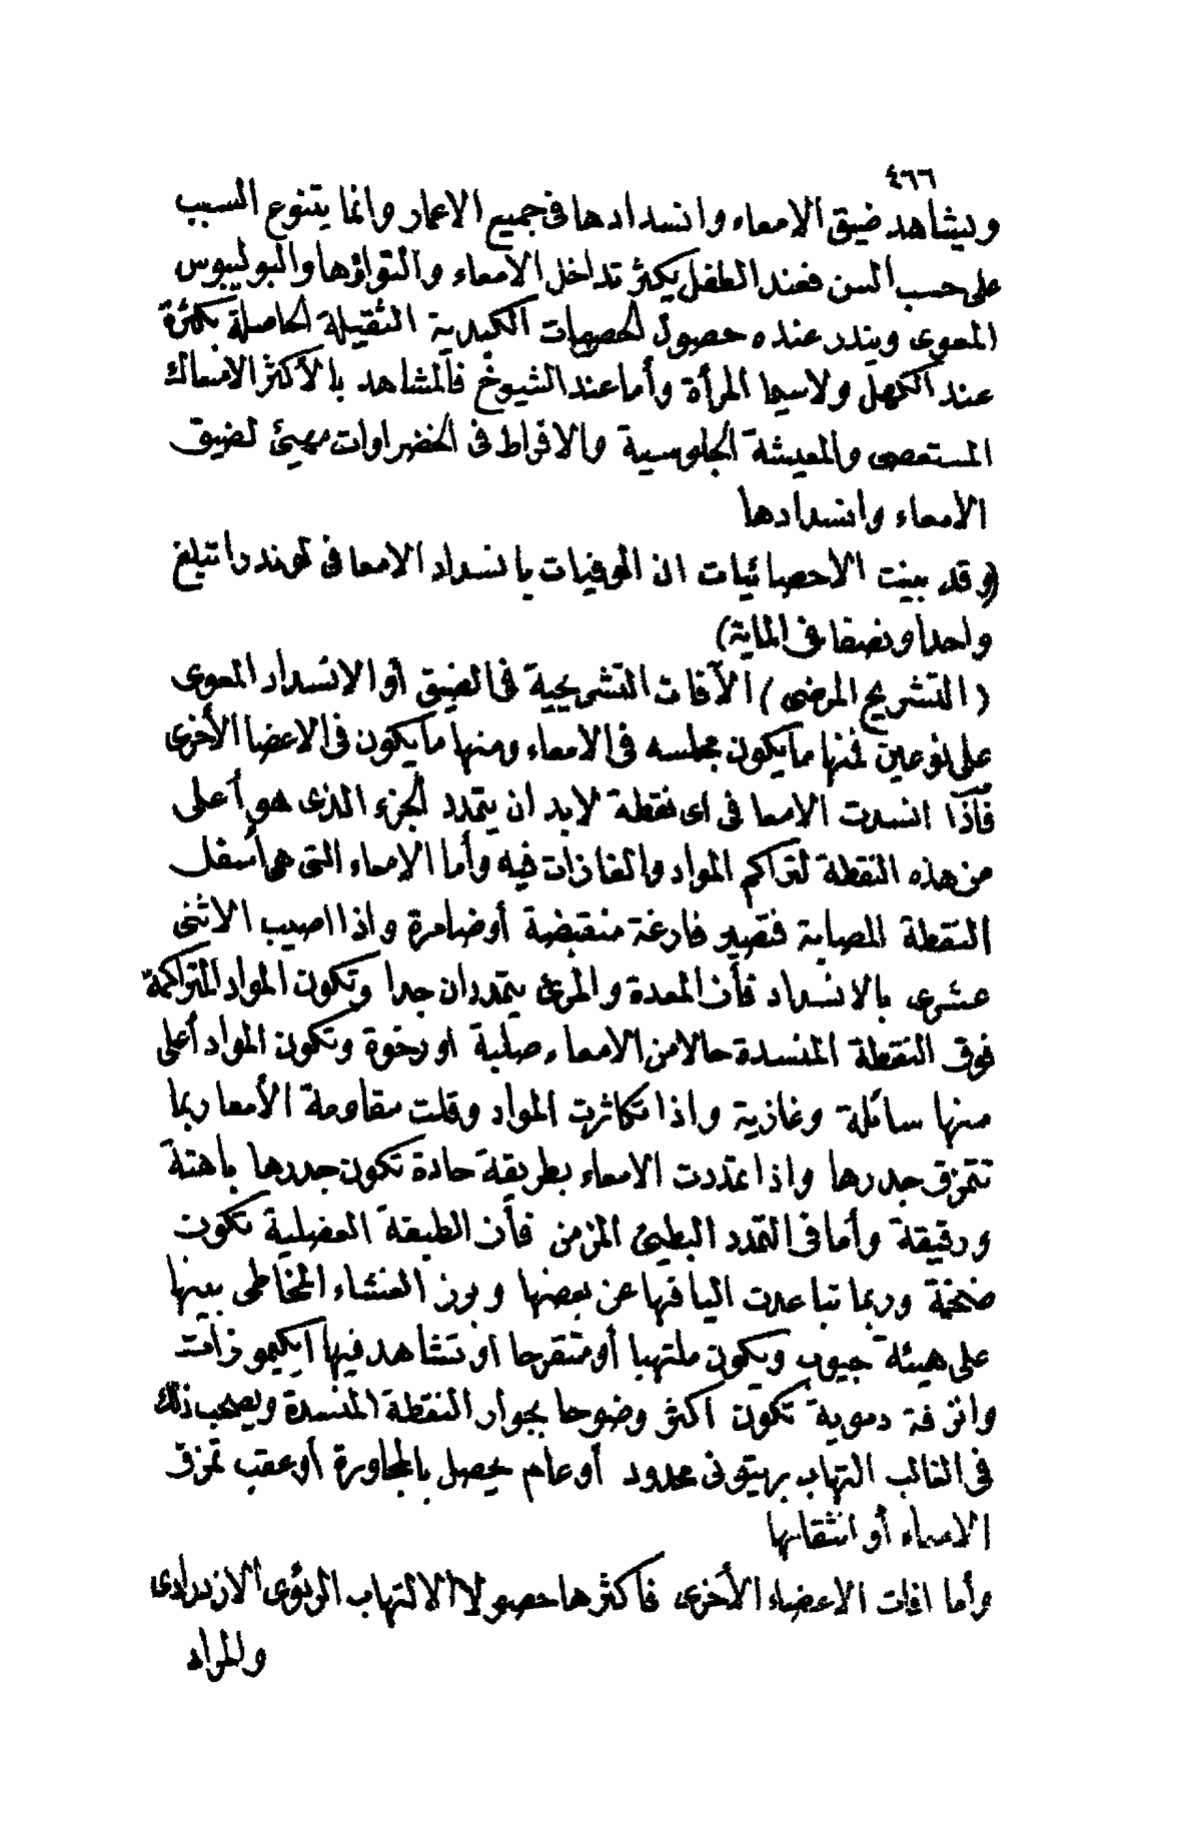 ٤٦٦
ويشاهد ضيق الامعاء وانسدادها فى جميع الاعمار وانما يتنوع السبب
على حسب السن فعند الطفل يكثر تداخل الامعاء والتواؤها والبوليبوس
المعوى ويندر عنده حصول الحصيات الكبدية الثقيلة الحاصلة بكثرة
عند الكهل ولاسيما المرأة وأما عند الشيوخ فالمشاهد بالأكثر الامساك
المستعصى والمعيشة الجلوسية والافراط فى الخضراوات مهيئ لضيق
الامعاء وانسدادها
(وقد بينت الاحصائيات ان الوفيات بانسداد الامعا فى لوندرا تبلغ
واحدا ونصفا فى الماية)
(التشريح المرضى) الآفات التشريحية فى الضيق أو الانسداد المعوى
على نوعين فمنها مايكون مجلسه فى الامعاء ومنها مايكون فى الاعضا الأخرى
فأذا انسدت الامعا فى اى نقطة لابد ان يتمدد الجزء الذى هو أعلى
من هذه النقطة لتراكم المواد والغازات فيه وأما الامعاء التى هى أسفل
النقطة المصابة فتصير فارغة منقبضة أوضامرة واذا اصيب الاثنى
عشرى بالانسداد فأن المعدة والمرئ يتمددان جدا وتكون المواد المتراكمة
فوق النقطة المنسدة حالا من الامعاء صلبة او رخوة وتكون المواد أعلى
منها سائلة وغازية واذا تكاثرت المواد وقلت مقاومة الأمعا ربما
تتمزق جدرها واذا تمددت الامعاء بطريقة حادة تكون جدرها باهتة
ورقيقة وأما فى التمدد البطئ المزمن فأن الطبقة العضلية تكون
ضخمة وربما تباعدت اليافها عن بعضها وبرز الغشاء المخاطى بينها
على هيئة جيوب ويكون ملتهبا أومتقرحا او تشاهد فيها ايكيموزات
وانزفة دموية تكون اكثر وضوحا بجوار النقطة المنسدة ويصحب ذلك
فى الغالب التهاب بريتونى محدود أو عام يحصل بالمجاورة أو عقب تمزق
الامعاء أو انثقابها
وأما افات الاعضاء الأخرى فأكثرها حصولا الالتهاب الرئوى الازدرادى
والمراد